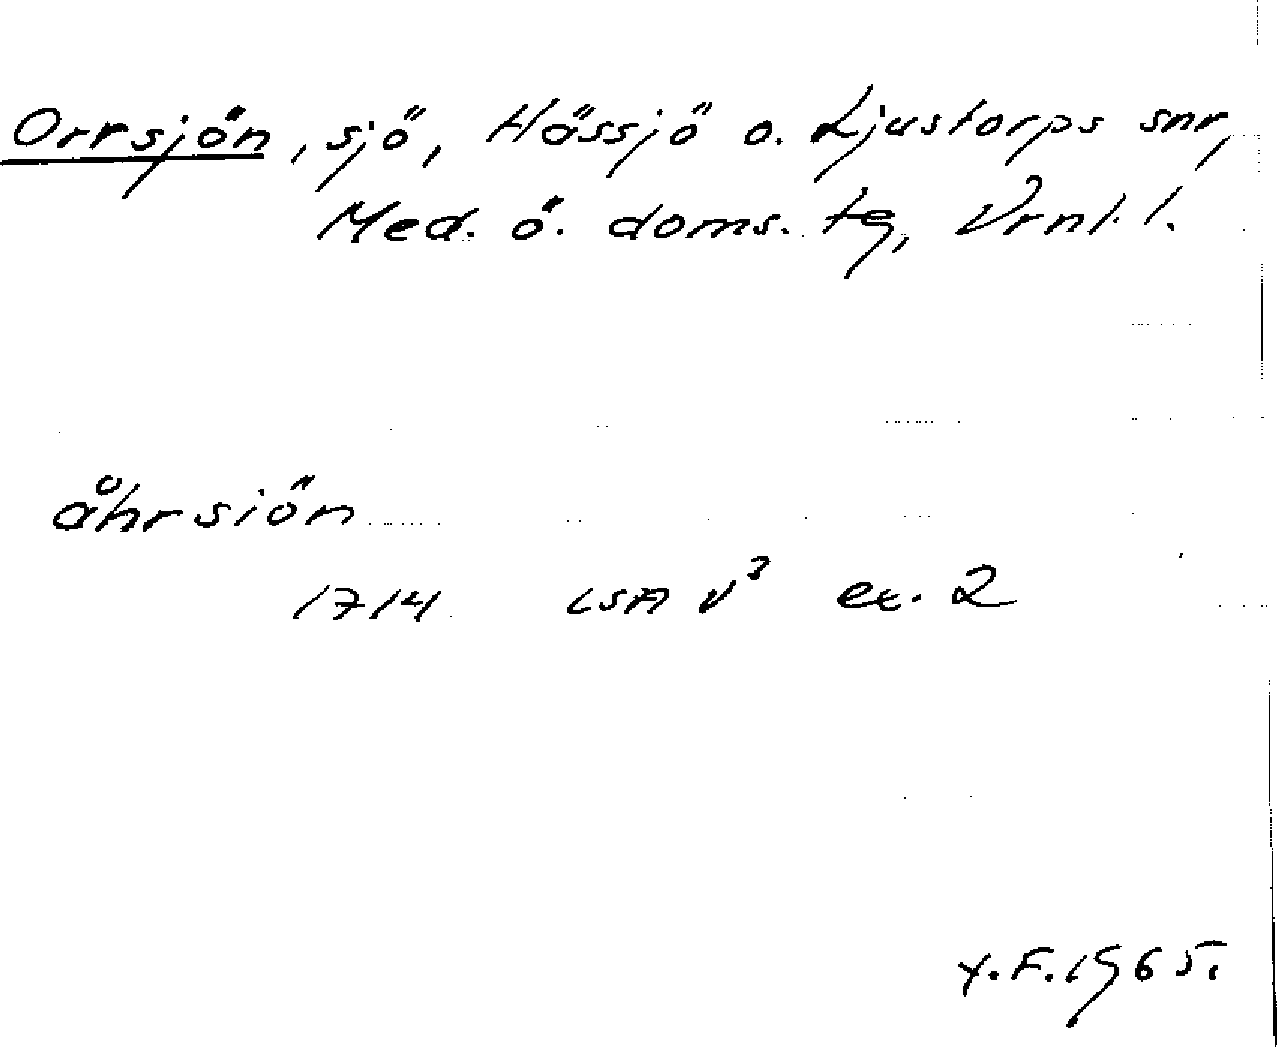 Orrsjön, sjö, Hässjö o. Ljustorps snr,
Med. ö. doms. tg, Vrnl. l.
åhrsiön
1714 LSA V³ ex. 2
Y.F. 1965.